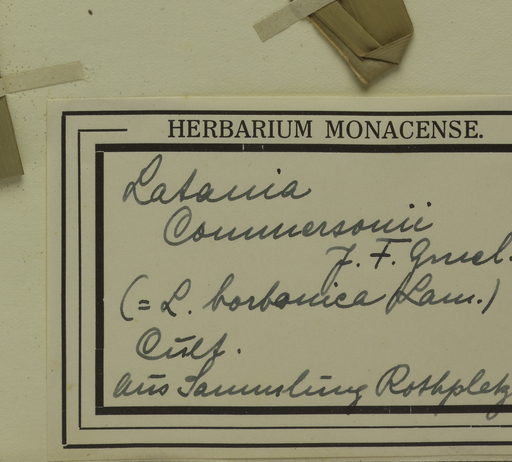 HERBARIUM MONACENSE.
Latania
Commersonii
J. F. Gmel.
(= L. borbonica Lam.)
Cult.
aus Sammlung Rothpletz